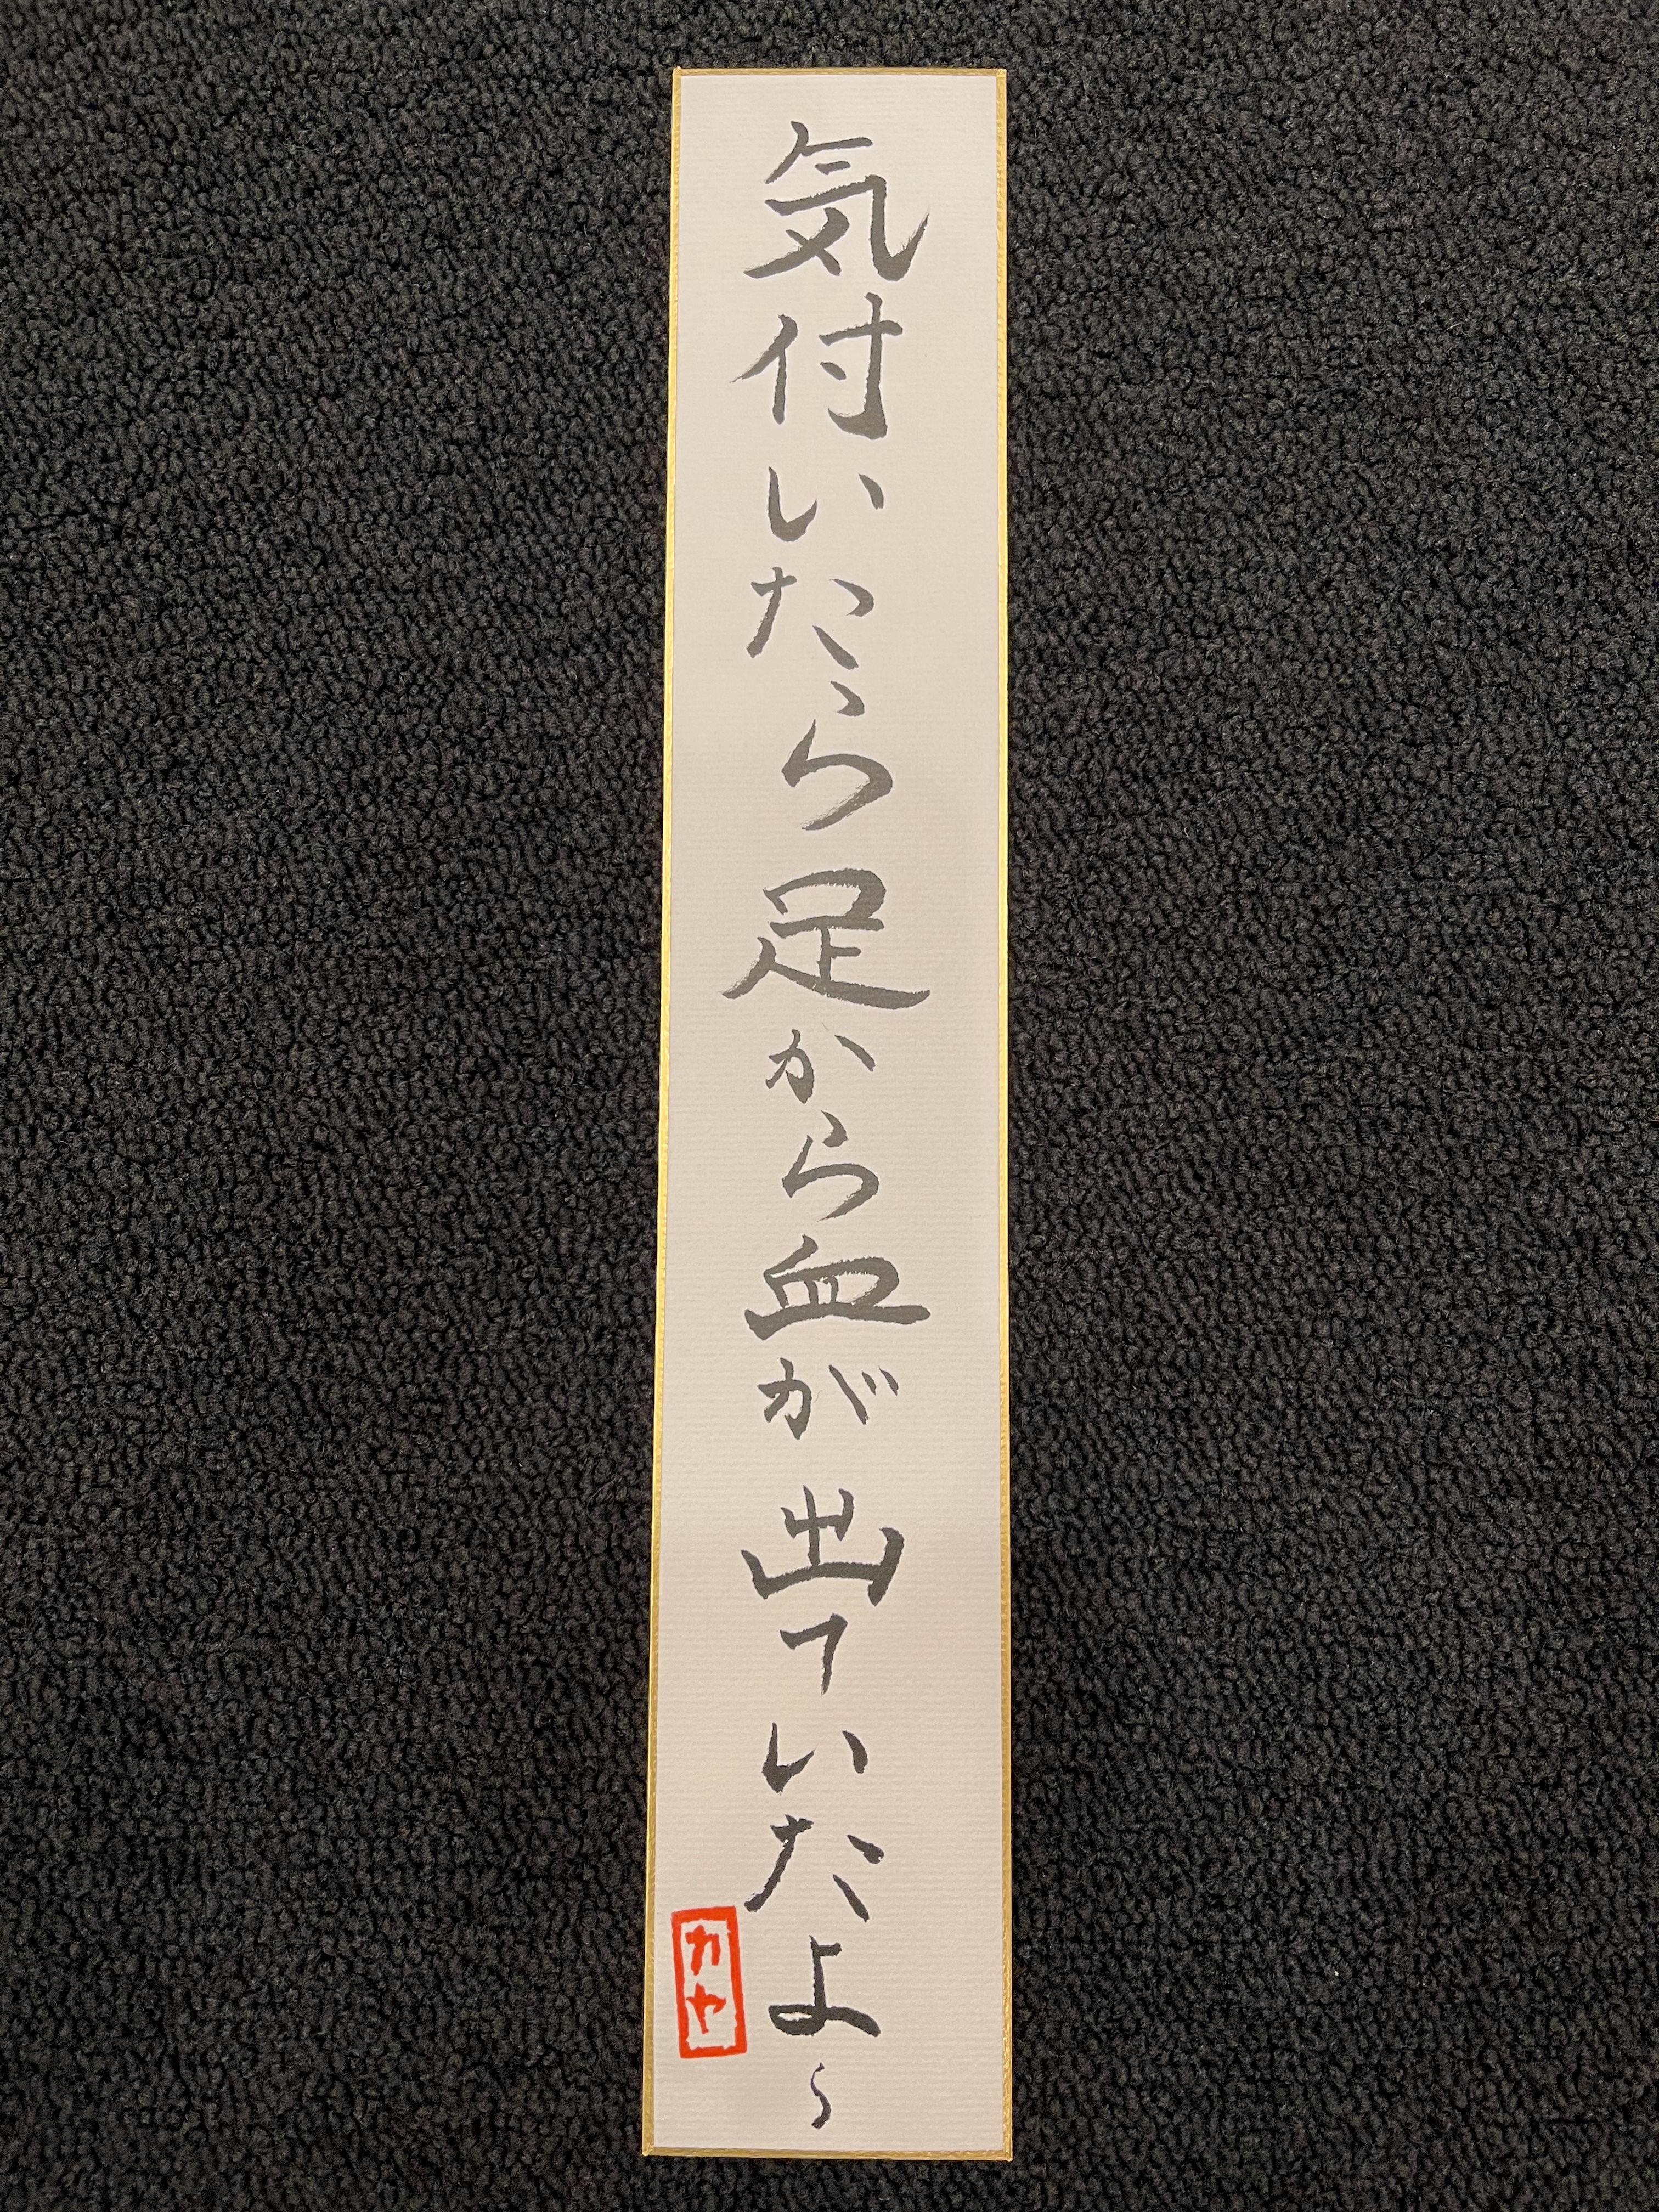 気付いたら足から血が出ていたよ〜
カヤ